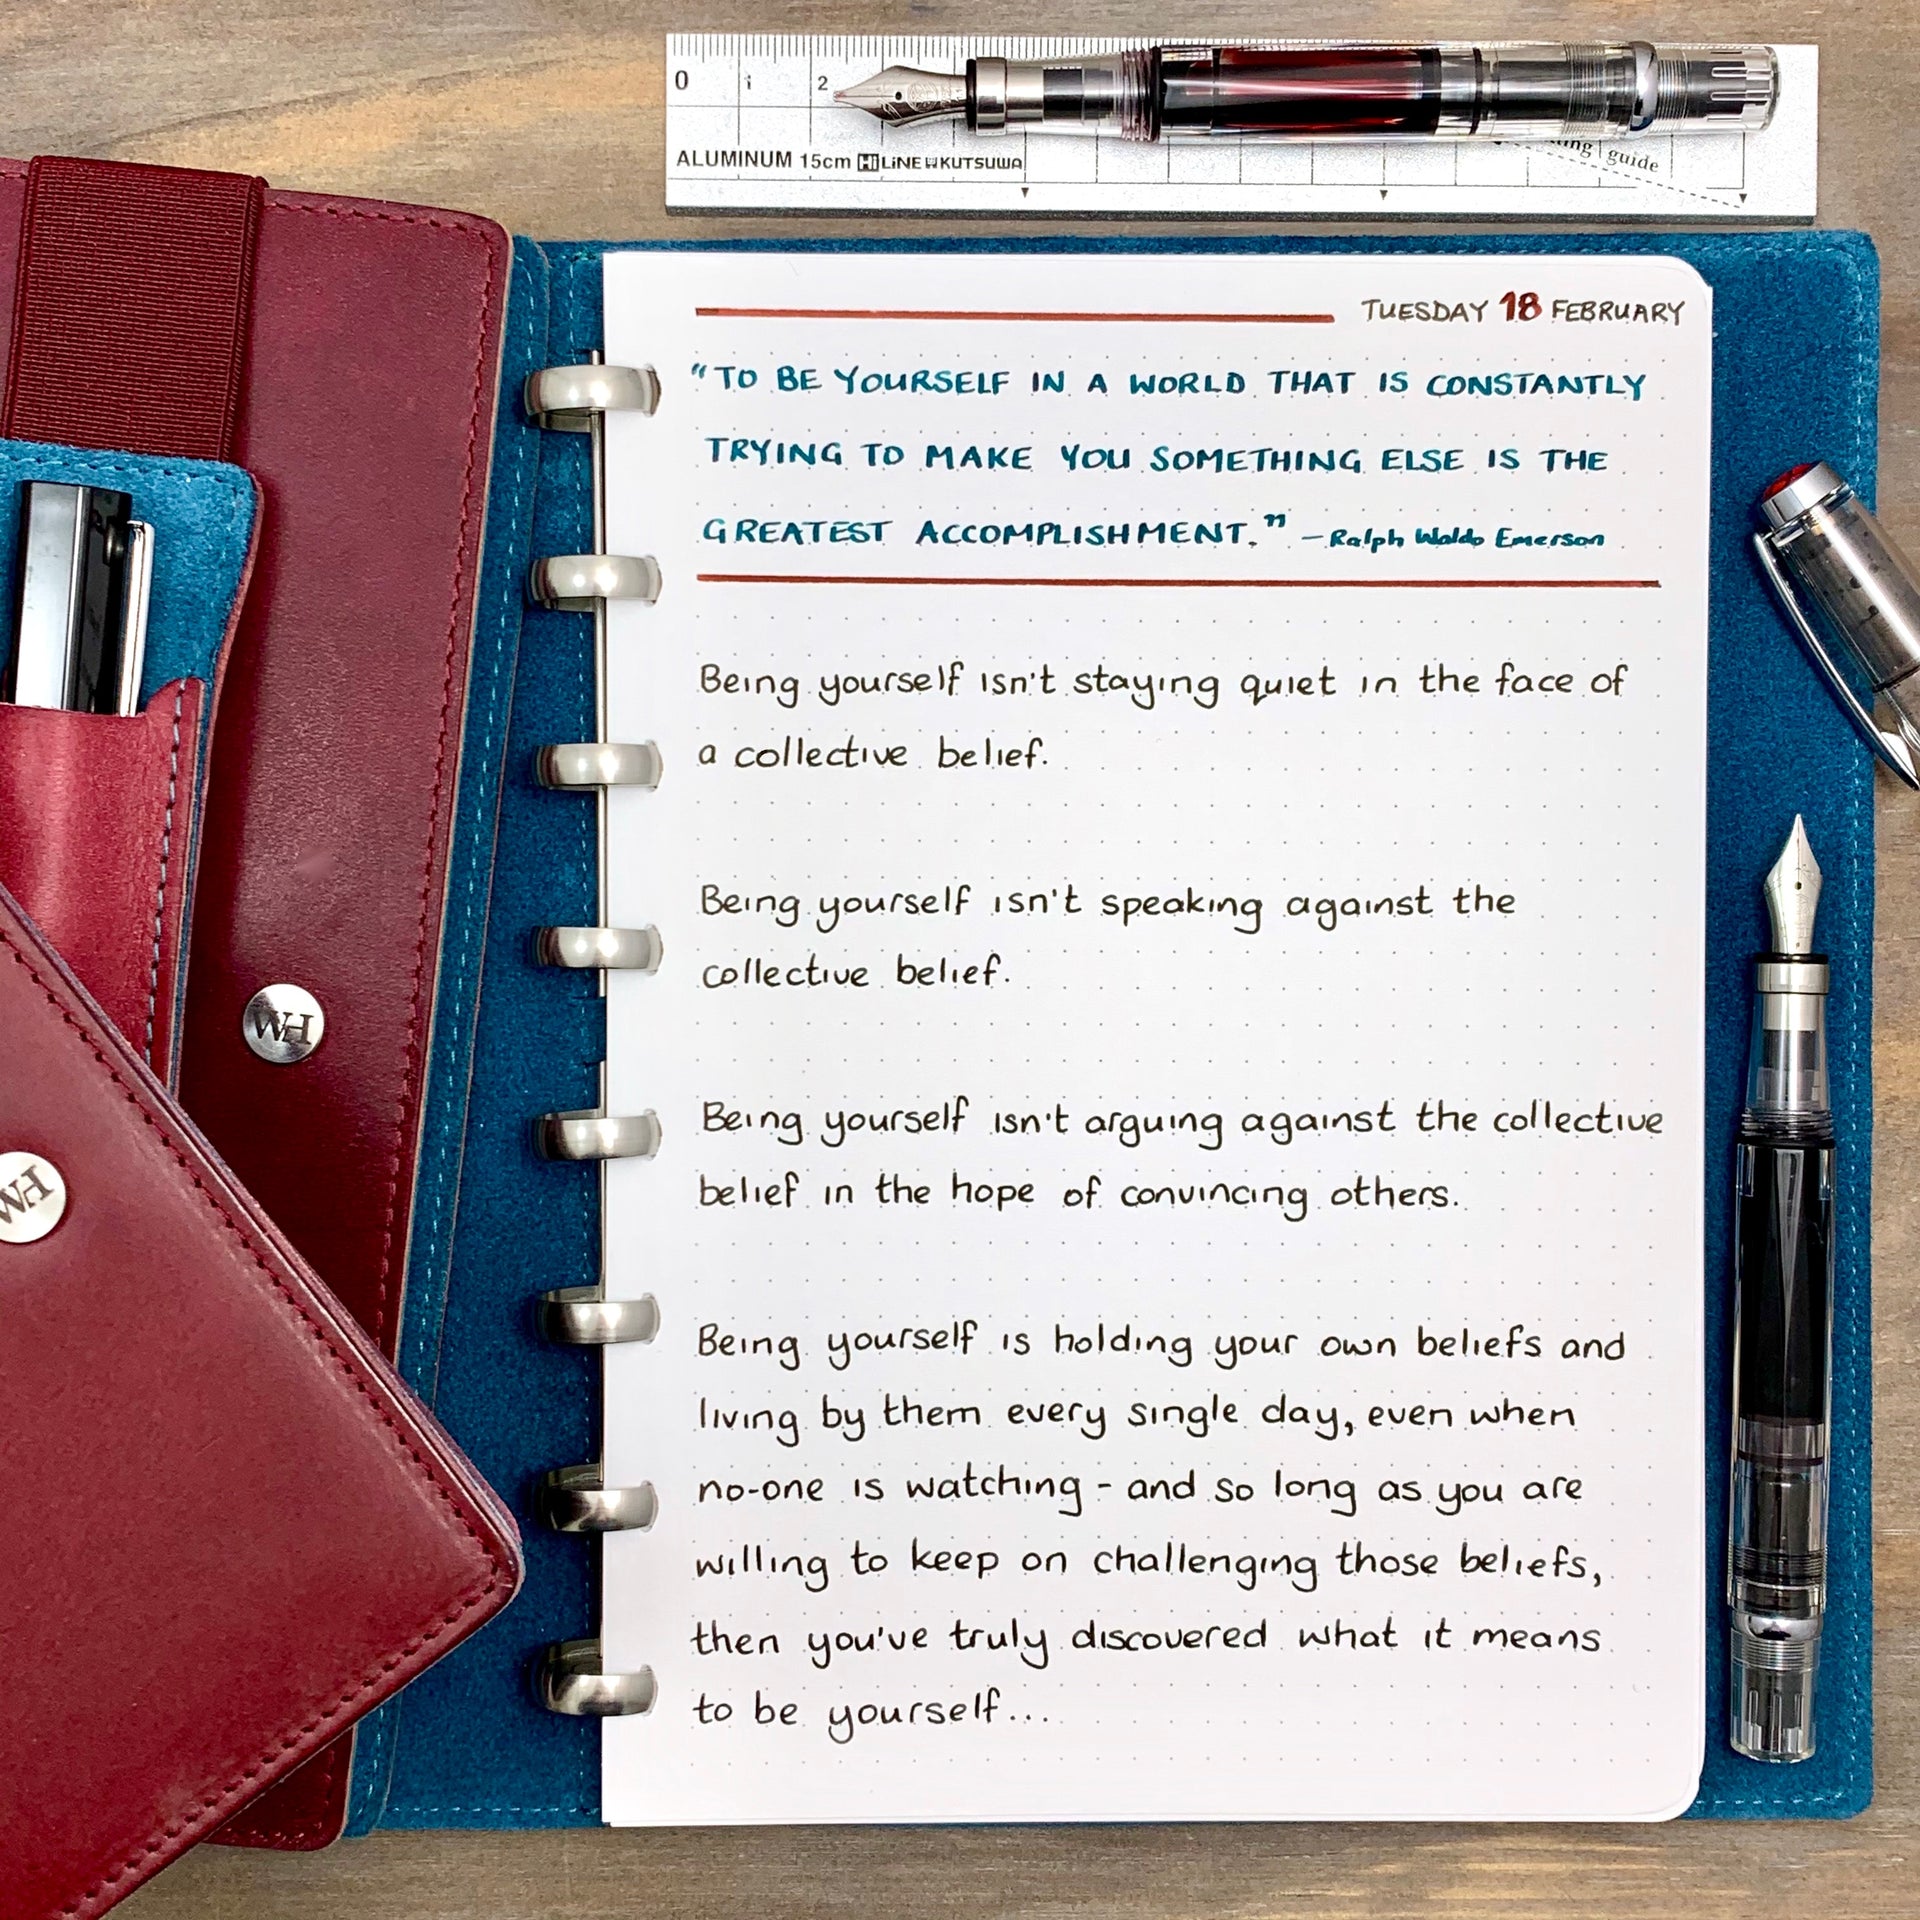 0 1 2
ALUMINUM 15cm Hi LiNE KUTSUWA
guide
TUESDAY 18 FEBRUARY
"TO BE YOURSELF IN A WORLD THAT IS CONSTANTLY
TRYING TO MAKE YOU SOMETHING ELSE IS THE
GREATEST ACCOMPLISHMENT." - Ralph Waldo Emerson
Being yourself isn't staying quiet in the face of
a collective belief.
Being yourself isn't speaking against the
collective belief.
Being yourself isn't arguing against the collective
belief in the hope of convincing others.
Being yourself is holding your own beliefs and
living by them every single day, even when
no-one is watching - and so long as you are
willing to keep on challenging those beliefs,
then you've truly discovered what it means
to be yourself...
WH
WH